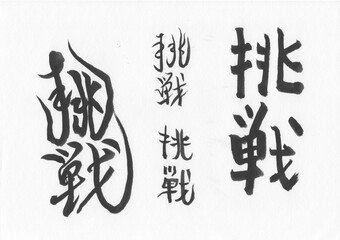 挑戦
挑戦
挑戦
挑戦